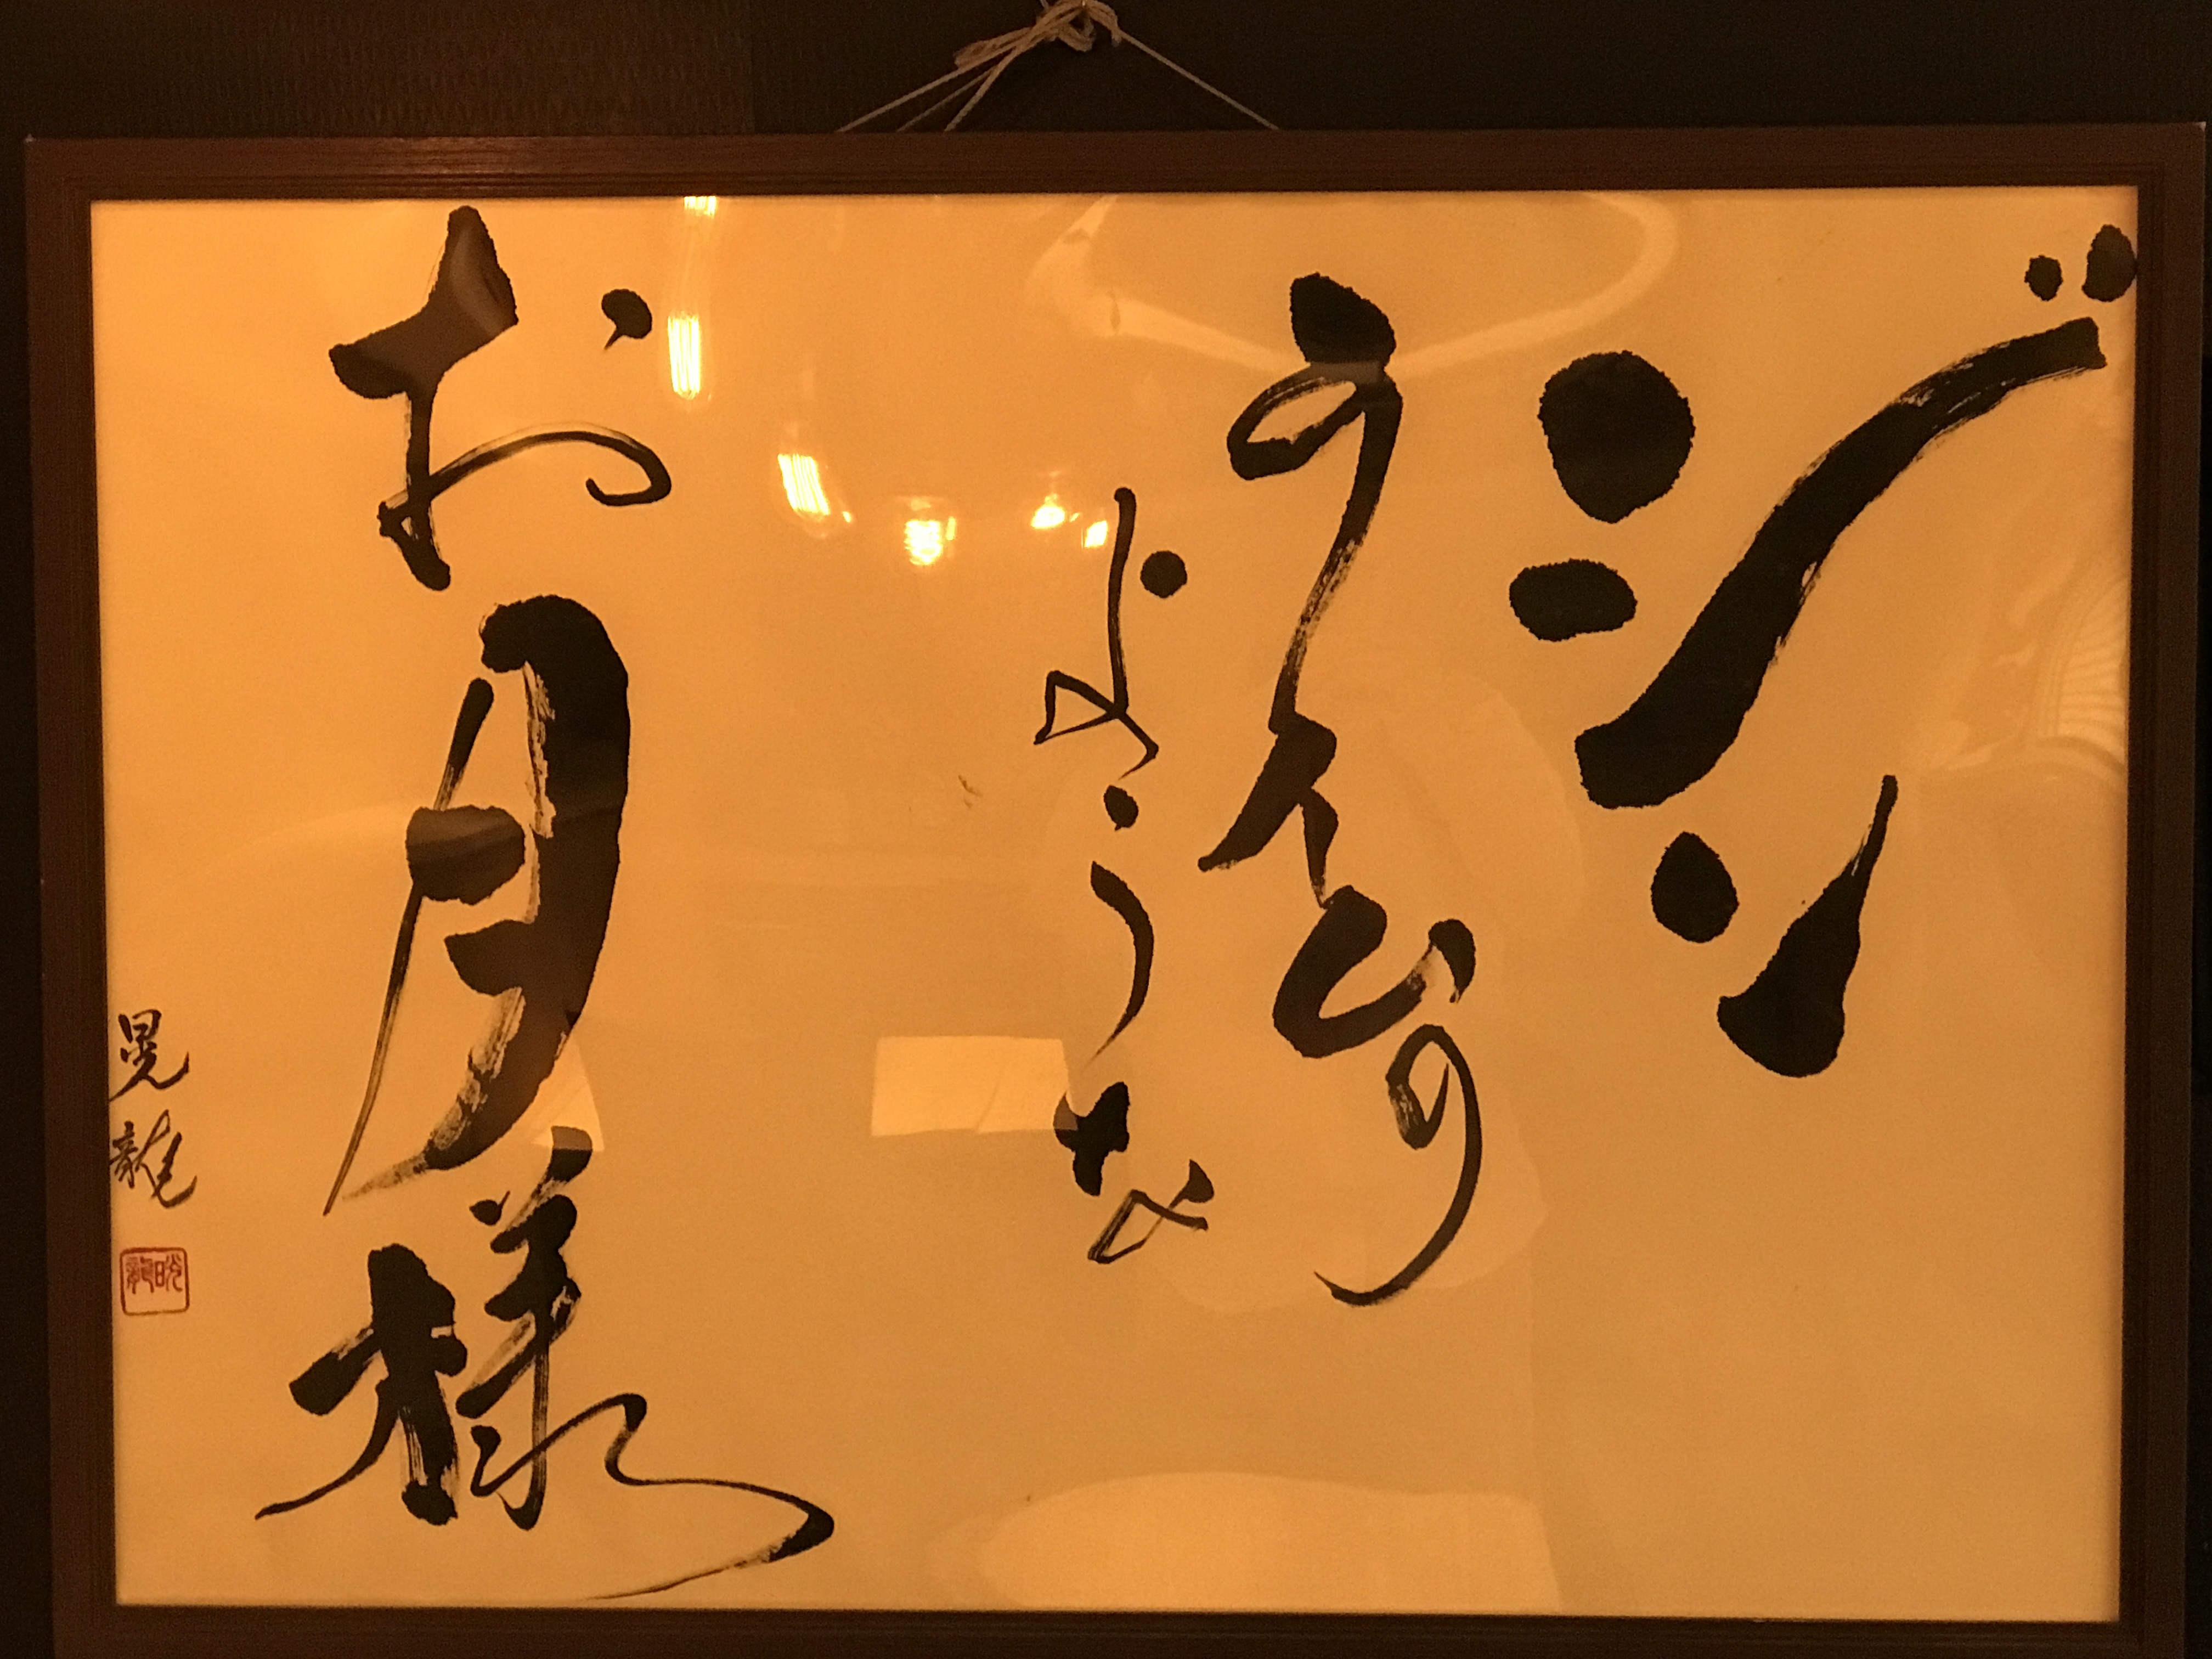 ジン
ライムの
ような
お月様
晃龍